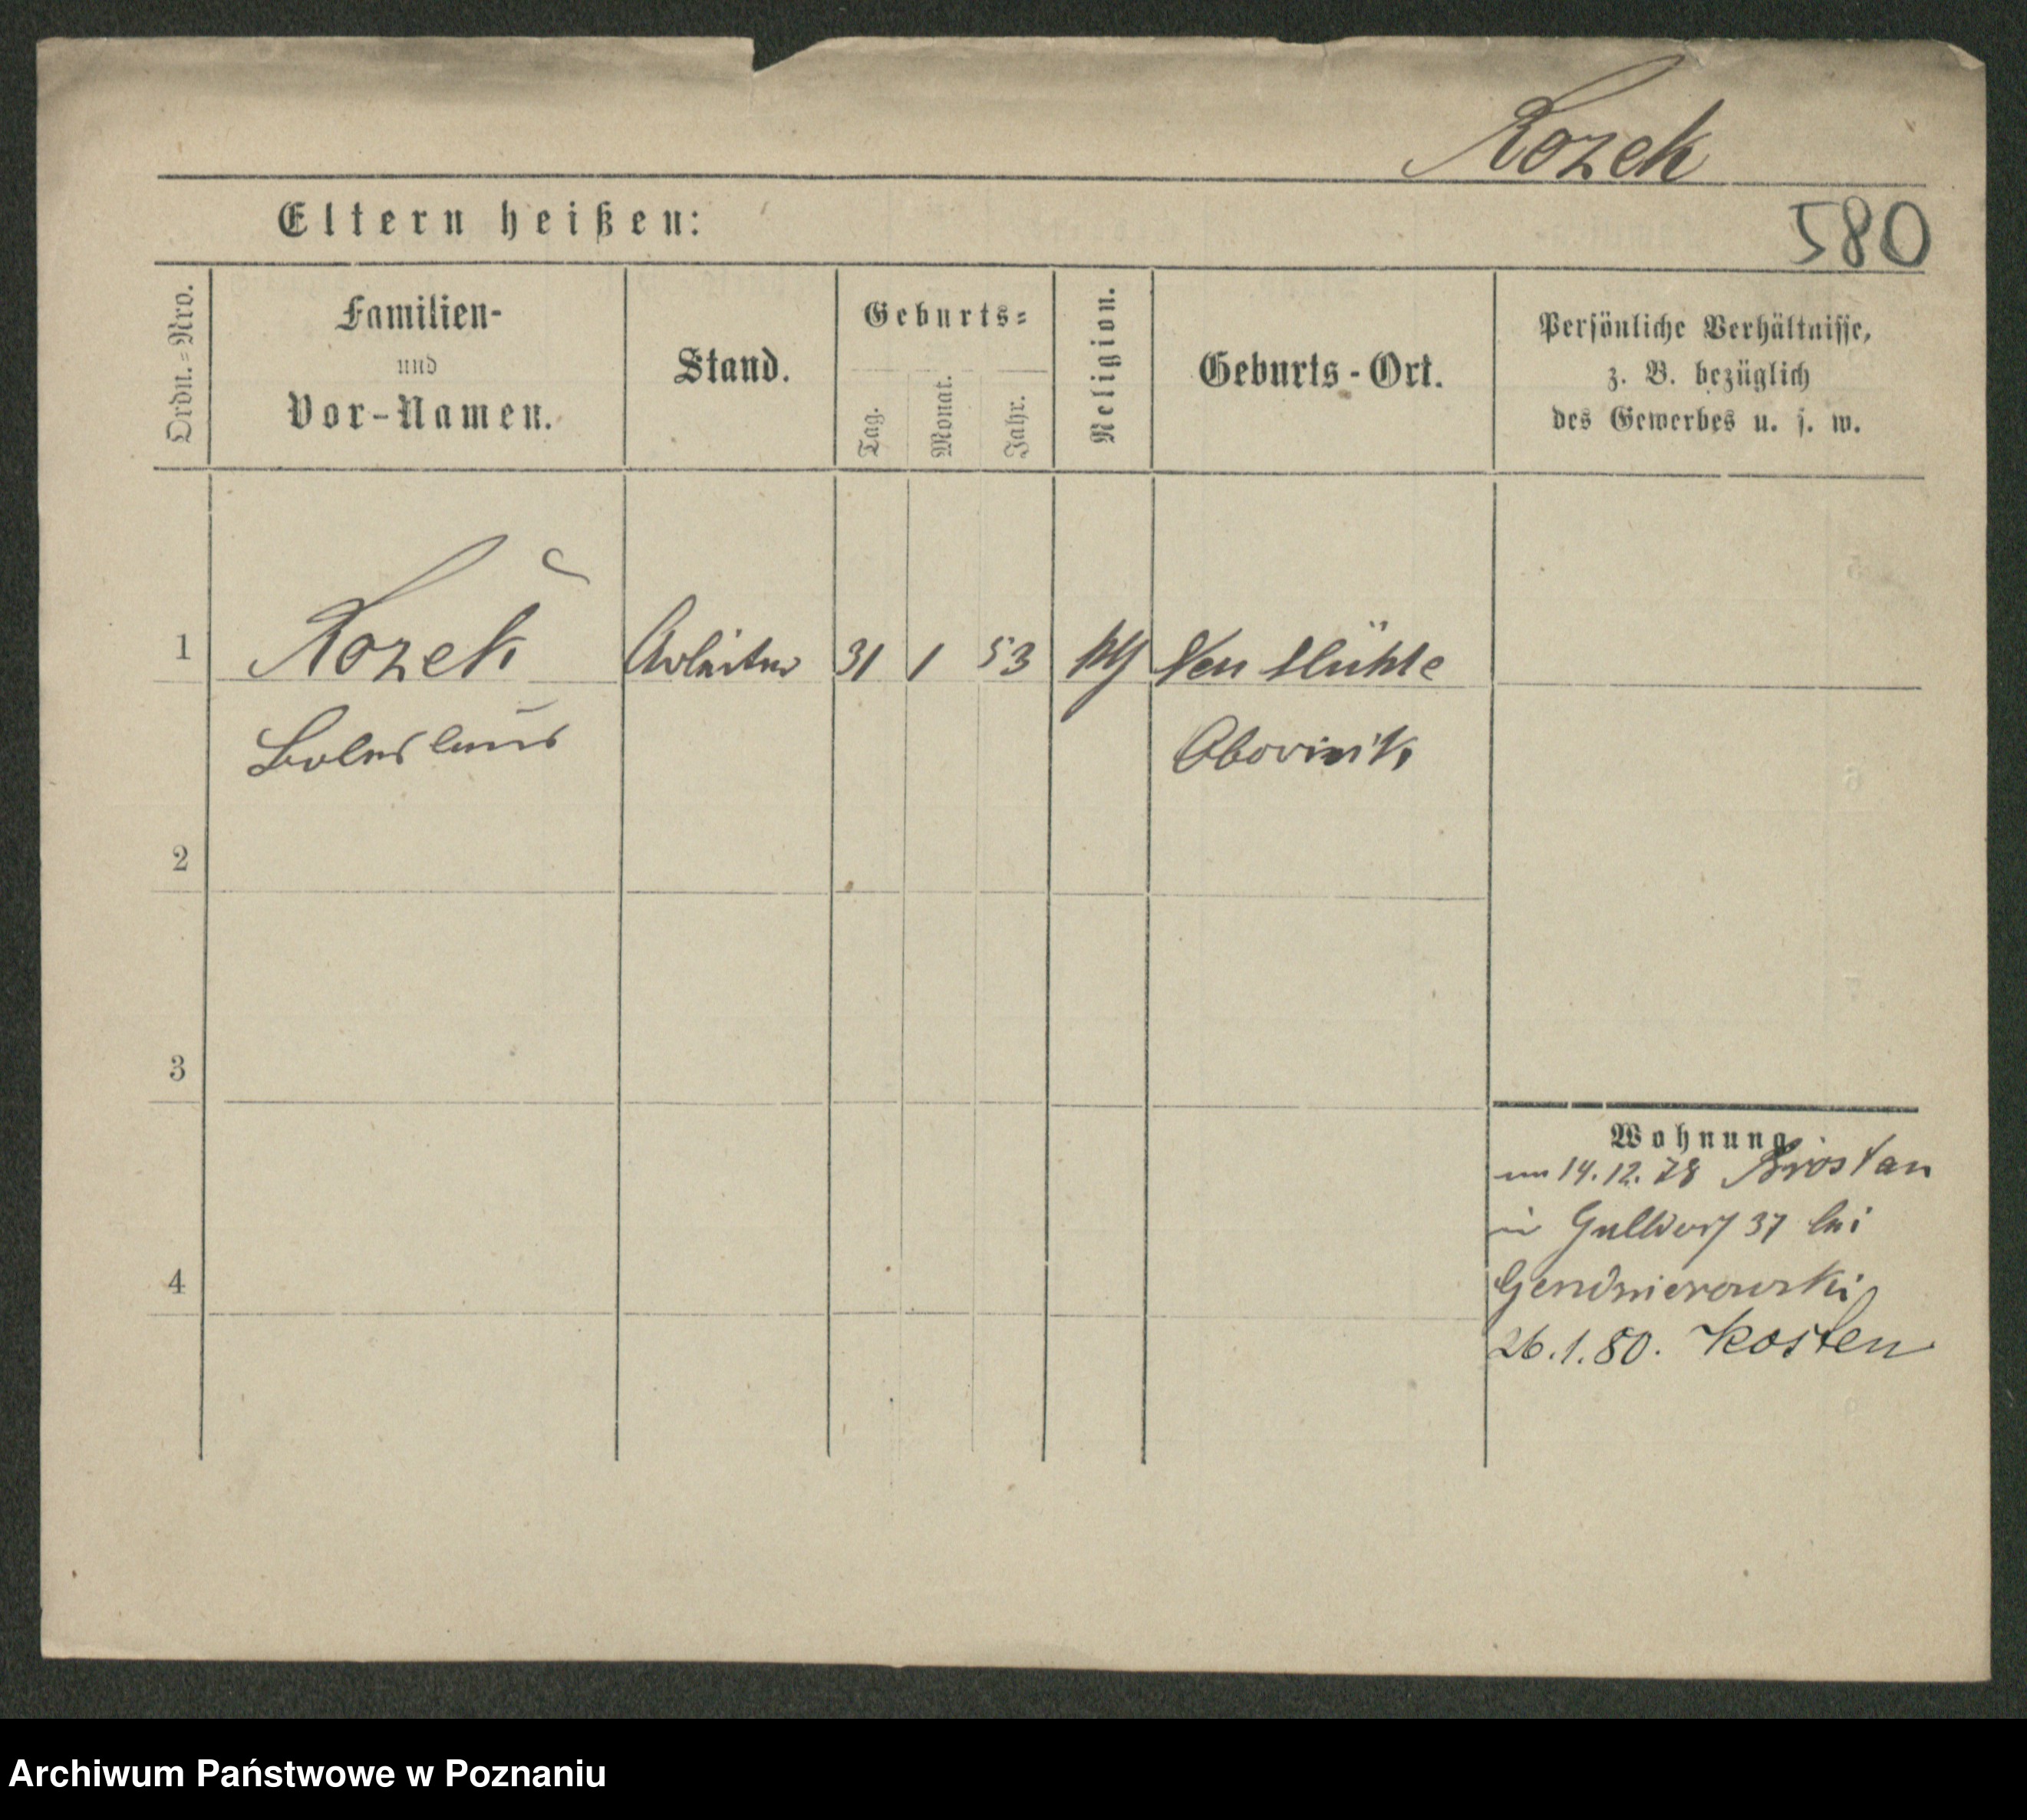 Kozek
Eltern heißen:
580
Ordn.-Nro.
Familien-
und
Vor-Namen.
Stand.
Geburts-
Tag.
Monat.
Jahr.
Religion.
Geburts-Ort.
Persönliche Verhältnisse,
z. B. bezüglich
des Gewerbes u. s. w.
1
Kozek
Arbeiter
31
1
53
Neu Mühle
Boleslaus
Obornik
2
3
4
Wohnung
14.12.78
in 37 bei
26.1.80. Kosten
Archiwum Państwowe w Poznaniu